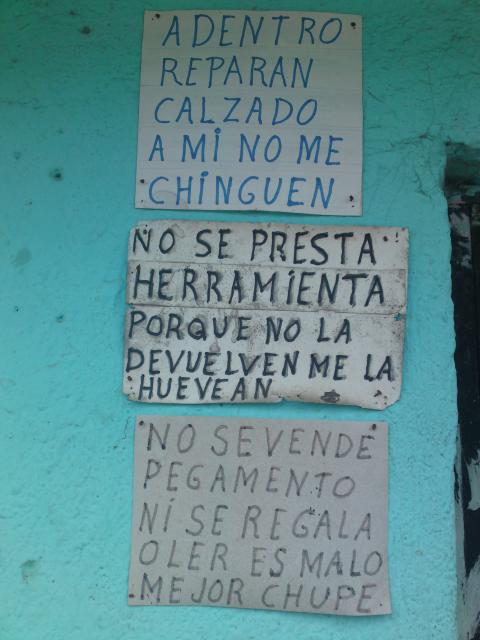 ADENTRO
REPARAN
CALZADO
A MI NO ME
CHINGUEN
NO SE PRESTA
HERRAMIENTA
PORQUE NO LA
DEVUELVEN ME LA
HUEVEAN
NO SE VENDE
PEGAMENTO
NI SE REGALA
OLER ES MALO
MEJOR CHUPE